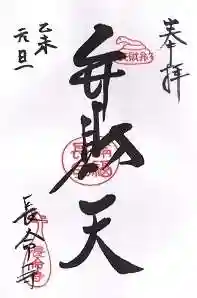 奉拝
弁財天
乙未
元旦
長命寺